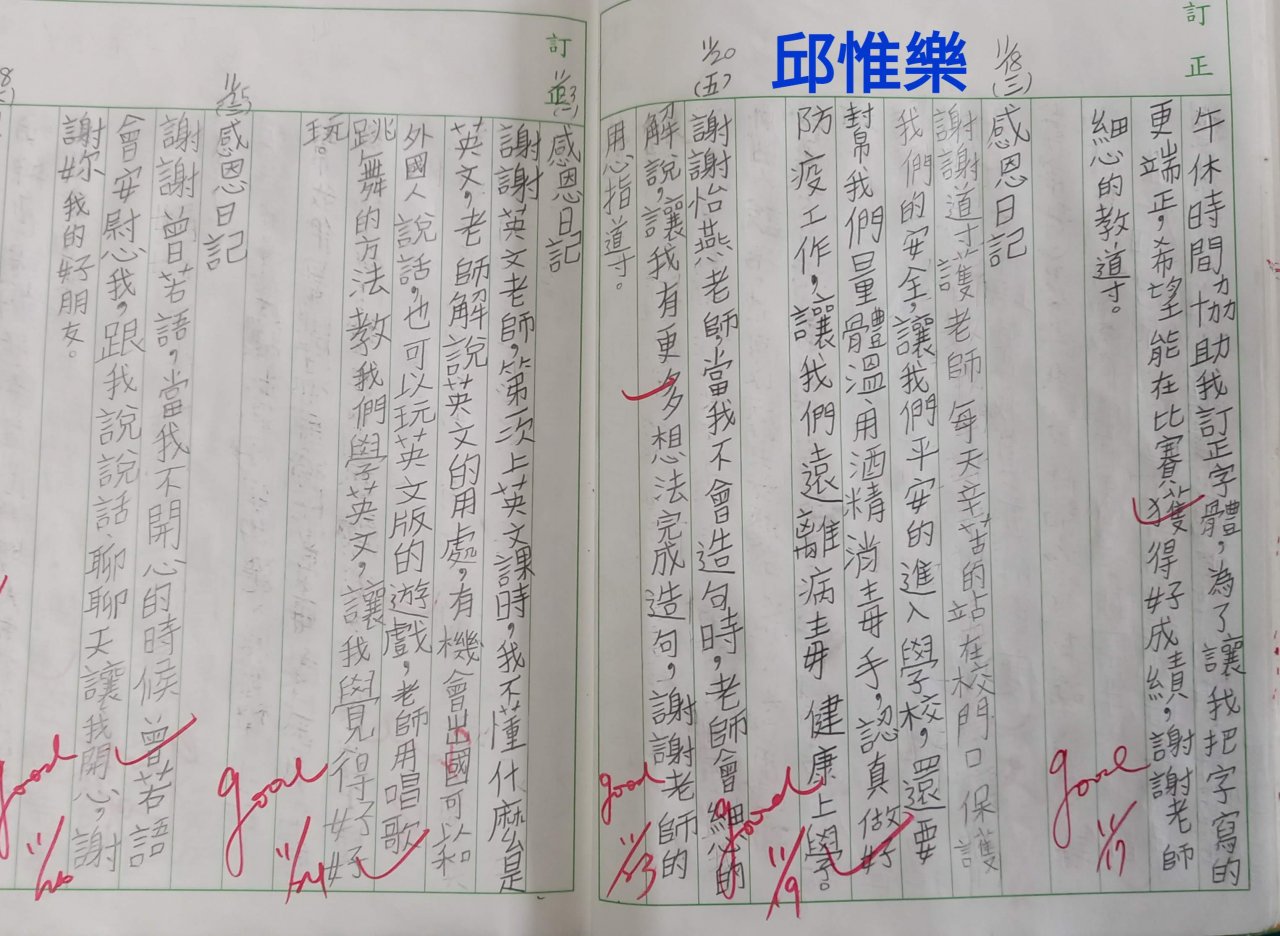 訂正
邱惟樂
午休時間協助我訂正字體，為了讓我把字寫的
更端正，希望能在比賽獲得好成績，謝謝老師
細心的教導。
good
11/17
11/18
(三)
感恩日記
謝謝導護老師每天辛苦的站在校門口保護
我們的安全，讓我們平安的進入學校，還要
幫我們量體溫用酒精消毒手，認真做好
防疫工作，讓我們遠離病毒健康上學。
good
11/19
11/20
(五)
謝謝怡燕老師，當我不會造句時，老師會細心的
解說，讓我有更多想法完成造句，謝謝老師的
用心指導。
good
11/23
訂正
感恩日記
謝謝英文老師，第一次上英文課時，我不懂什麼是
英文，老師解說英文的用處，有機會出國可以和
外國人說話，也可以玩英文版的遊戲，老師用唱歌
跳舞的方法教我們學英文，讓我覺得好好
玩。
good
11/24
11/25
感恩日記
謝謝曾若語，當我不開心的時候曾若語
會安慰心我，跟我說說話、聊聊天讓我開心，謝
謝妳我的好朋友。
good
11/26